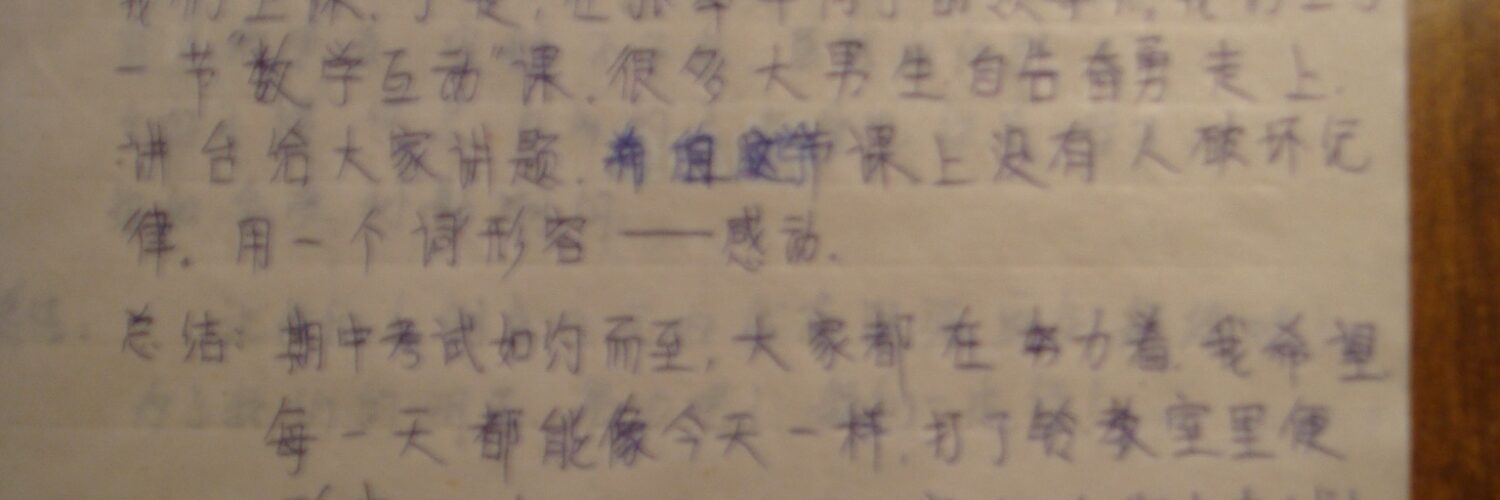 我们上课.于是,在
一节“数学互动”课.很多大男生自告奋勇走上.
讲台给大家讲题.并且这节课上没有人破坏纪
律.用一个词形容——感动.
总结:期中考试如约而至,大家都在努力着.我希望
每一天都能像今天一样.打了铃教室里便